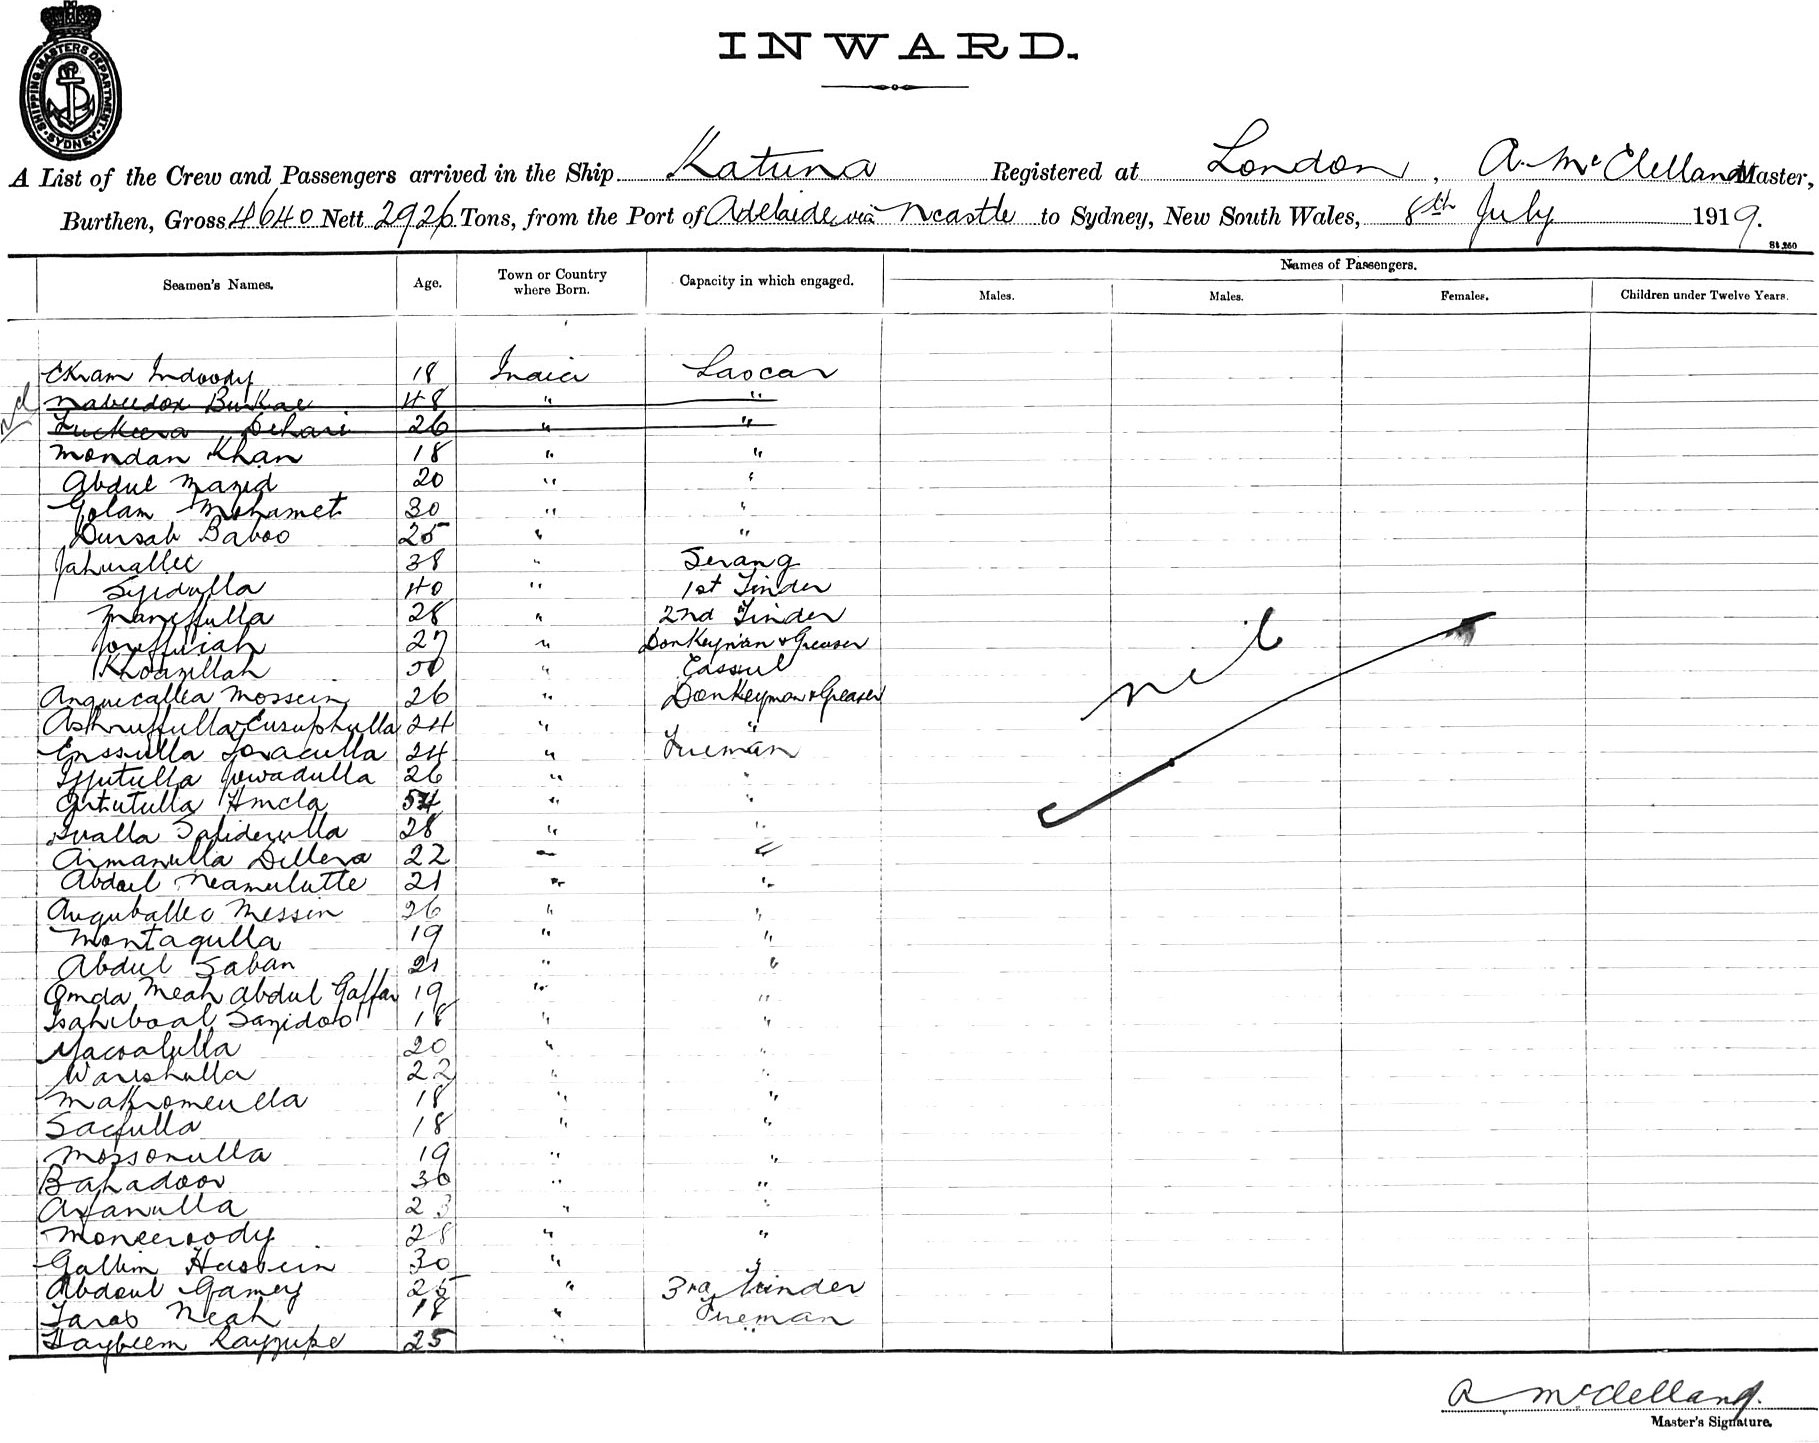 SHIPPING MASTERS DEPARTMENT SYDNEY
INWARD.
A List of the Crew and Passengers arrived in the Ship Katuna Registered at London, A. McClelland Master,
Burthen, Gross 4640 Nett 2926 Tons, from the Port of Adelaide via Ncastle to Sydney, New South Wales, 8th July 1919.
St.260
Seamen's Names. Age. Town or Country where Born. Capacity in which engaged. Names of Passengers.
Males. Males. Females. Children under Twelve Years.
Ekram Indoody 18 India Lascar
48 " "
26 " "
Mondan Khan 18 " "
Abdul Mazid 20 " "
Golam Mohamet 30 " "
Dursab Baboo 25 " "
Jahurallee 38 " Serang
Syedulla 40 " 1st Tinder
Maneffulla 28 " 2nd Tinder
27 " Donkeyman & Greaser
" Cassul
Mossein 26 " Donkeyman & Greaser
Ashruffulla Eusuphulla 24 " "
24 " Fireman
Jowadulla 26 " "
Hmcla 54 " "
28 " "
Armanulla Dillera 22 " "
Abdul Neamulutte 21 " "
Messin 26 " "
Montagulla 19 " "
Abdul Saban 21 " "
Omda Meah Abdul Gaffar 19 " "
Sazidoo 18 " "
Macoalulla 20 " "
Warishulla 22 " "
Makromeulla 18 " "
Sacfulla 18 " "
Mossonulla 19 " "
Bahadoor 30 " "
Arfanulla 23 " "
Moneeroody 28 " "
Gallim Hussein 30 " "
Abdoul Gamey 25 " 3rd Tinder
Tarab Neah 18 " Fireman
25 "
nil
A McClelland.
Master's Signature.